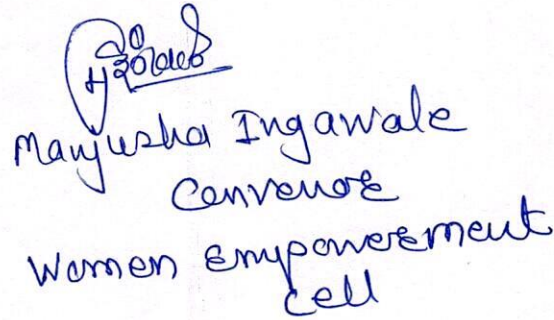 Manjusha Ingawale
Convenor
Women Empowerment
Cell